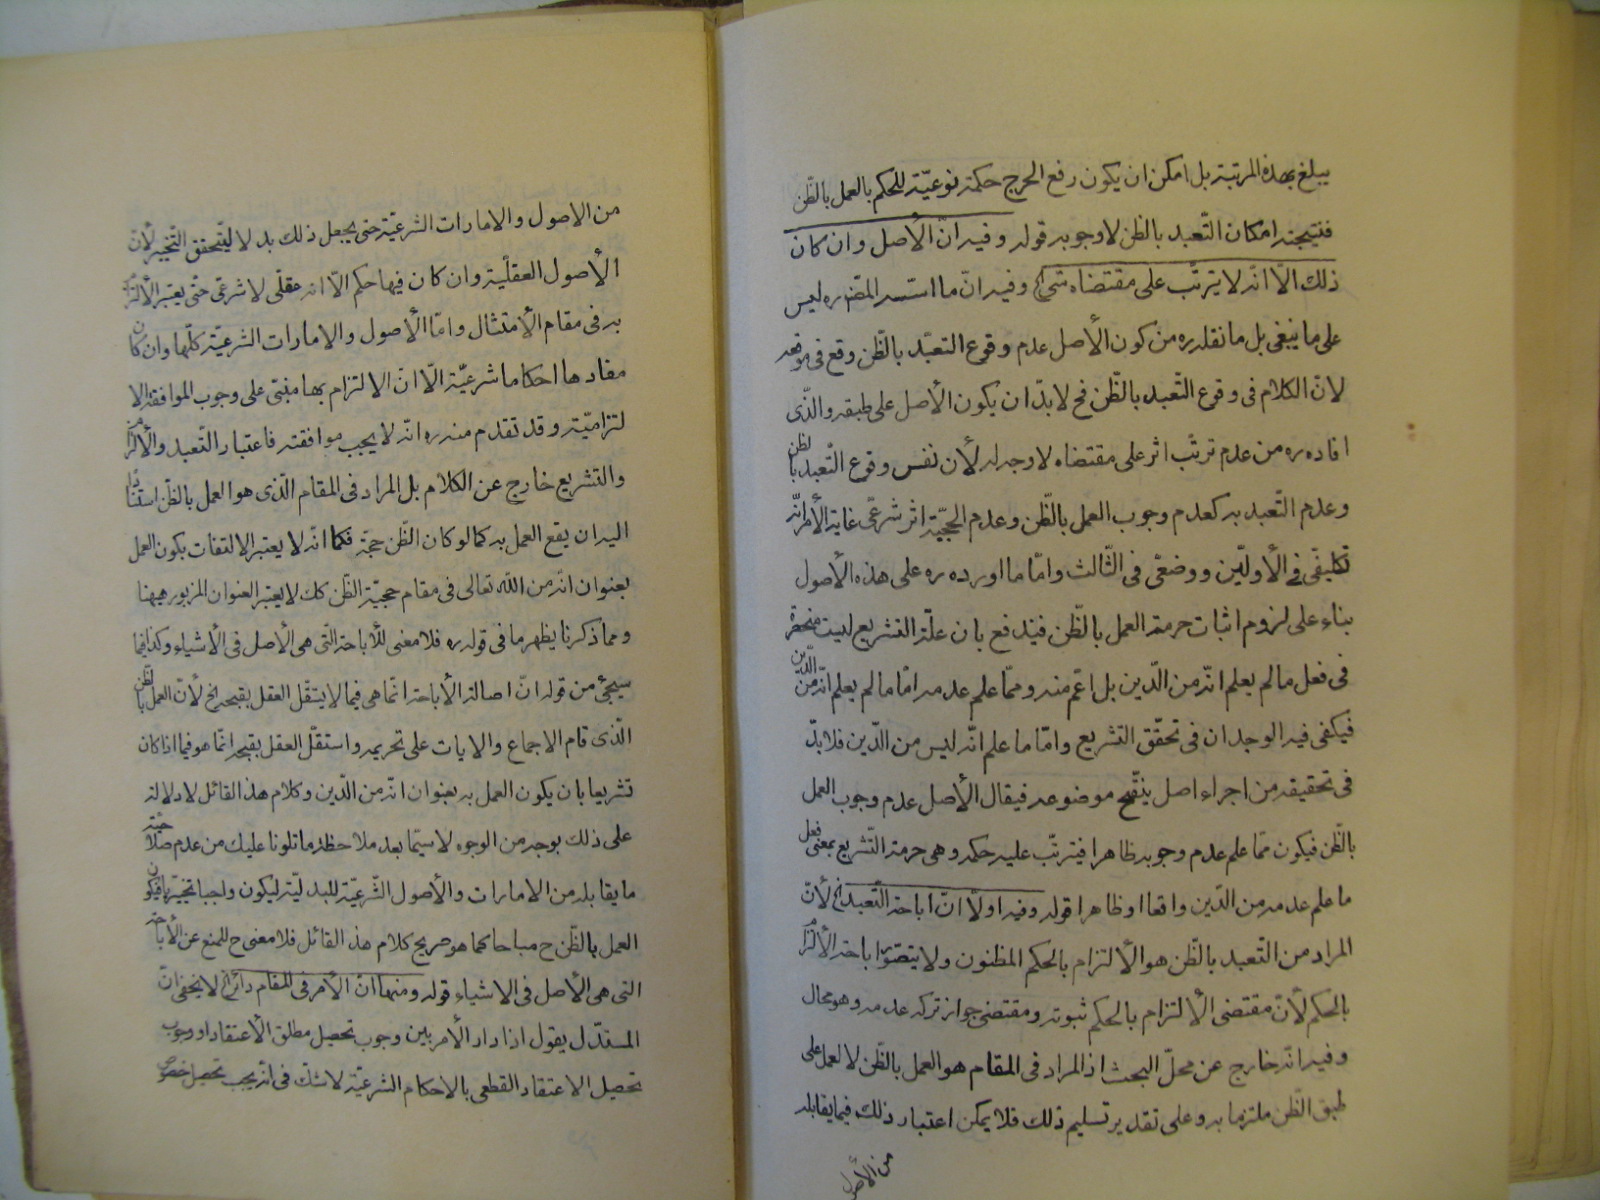 يبلغ بهذه المرتبة بل امكن ان يكون رفع الحرج حكمة نوعيّة للحكم بالعمل بالظّن
فنتيجته امكان التّعبد بالظن لا وجوبه قوله وفيه انّ الأصل وان كان
ذلك الّا انّه لا يترتّب على مقتضاه شئ وفيه انّ ما اسّسه المصّ ره ليس
على ما ينبغى بل ما نقله ره من كون الأصل عدم وقوع التعبّد بالظّن وقع فى موقعه
لانّ الكلام فى وقوع التّعبد بالظّن فح لا بدّ ان يكون الأصل على طبقه والّذى
افاده ره من عدم ترتّب اثر على مقتضاه لا وجه له لأن نفس وقوع التّعبد بالظن
وعدم التّعبد به كعدم وجوب العمل بالظّن وعدم الحجيّة اثر شرعى غاية الأمر انّه
تكليفى فى الأوليّن ووضعى فى الثّالث وامّا ما اورده ره على هذه الأصول
بناء على لزوم اثبات حرمة العمل بالظّن فيندفع بان علّة التشريع ليست منحصرة
فى فعل ما لم يعلم انّه من الدّين بل اعّم منه وممّا علم عدمه امّا ما لم يعلم انّه من الدّين
فيكفى فيه الوجدان فى تحقّق التشريع وامّا ما علم انّه ليس من الدّين فلا بدّ
فى تحقيقه من اجراء اصل ينقّح موضوعه فيقال الأصل عدم وجوب العمل
بالظّن فيكون ممّا علم عدم وجوبه ظاهرا فيترتّب عليه حكمه وهى حرمة التّشريع بمعنى فعل
ما علم عدمه من الدّين واقعا او ظاهرا قوله وفيه اولا انّ اباحة التّعبد الخ لأنّ
المراد من التّعبد بالظّن هو الألتزام بالحكم المظنون ولا يتصوّر اباحة الألتزام
بالحكم لأنّ مقتضى الألتزام بالحكم ثبوته ومقتضى جواز تركه عدمه وهو محال
وفيه انّه خارج عن محلّ البحث اذ المراد فى المقام هو العمل بالظّن لا لعمل على
طبق الظّن ملتزما به وعلى تقدير تسليم ذلك فلا يمكن اعتبار ذلك فيما يقابله
من الأصول
من الاصول والامارات الشرعيّة حتى يجعل ذلك بدلا ليتحقق التّخيير لأنّ
الأصول العقليّة وان كان فيها حكم الّا انه عقلى لا شرعى حتّى يعتبر الألتزام
به فى مقام الأمتثال وامّا الأصول والامارات الشرعيّة كلّها وان كان
مفادها احكاما شرعيّة الّا انّ الالتزام بها مبنى على وجوب الموافقة الا
لتزاميّة وقد تقدم منه ره انّه لا يجب موافقته فاعتبار التّعبد والألتزام
والتشريع خارج عن الكلام بل المراد فى المقام الّذى هو العمل بالظّن استنادا
اليه ان يقع العمل به كما لو كان الظّن حجة فكما انّه لا يعتبر الالتفات بكون العمل
بعنوان انّه من الله تعالى فى مقام حجيّة الظّن كك لا يعتبر العنوان المزبور هيهنا
ومما ذكرنا يظهر ما فى قوله ره فلا معنى للأباحة الّتى هى الأصل فى الأشياء وكذا فيما
سيجئ من قوله انّ اصالة الأباحة انّما هى فيما لا يستقّل العقل بقبحه الخ لأنّ العمل بالظّن
الّذى قام الاجماع والايات على تحريمه واستقلّ العقل بقبحه انّما هو فيما اذا كان
تشريعا بان يكون العمل به بعنوان انّه من الدّين وكلام هذا القائل لا دلالة
على ذلك بوجه من الوجوه لا سيّما بعد ملاحظة ما تلونا عليك من عدم صلاحيّة
ما يقابله من الامارات والأصول الشّرعيّة للبدليّة ليكون واجبا تخييريا فيكون
العمل بالظّن ح مباحا كما هو صريح كلام هذا القائل فلا معنى ح للمنع عن الأباحة
التى هى الأصل فى الاشياء قوله ومنها انّ الأمر فى المقام دائر الخ لا يخفى انّ
المستدّل يقول اذا دار الأمر بين وجوب تحصيل مطلق الأعتقاد او وجوب
تحصيل الاعتقاد القطعى بالاحكام الشرعيّة لا شك فى انّه يجب تحصيل خصوص